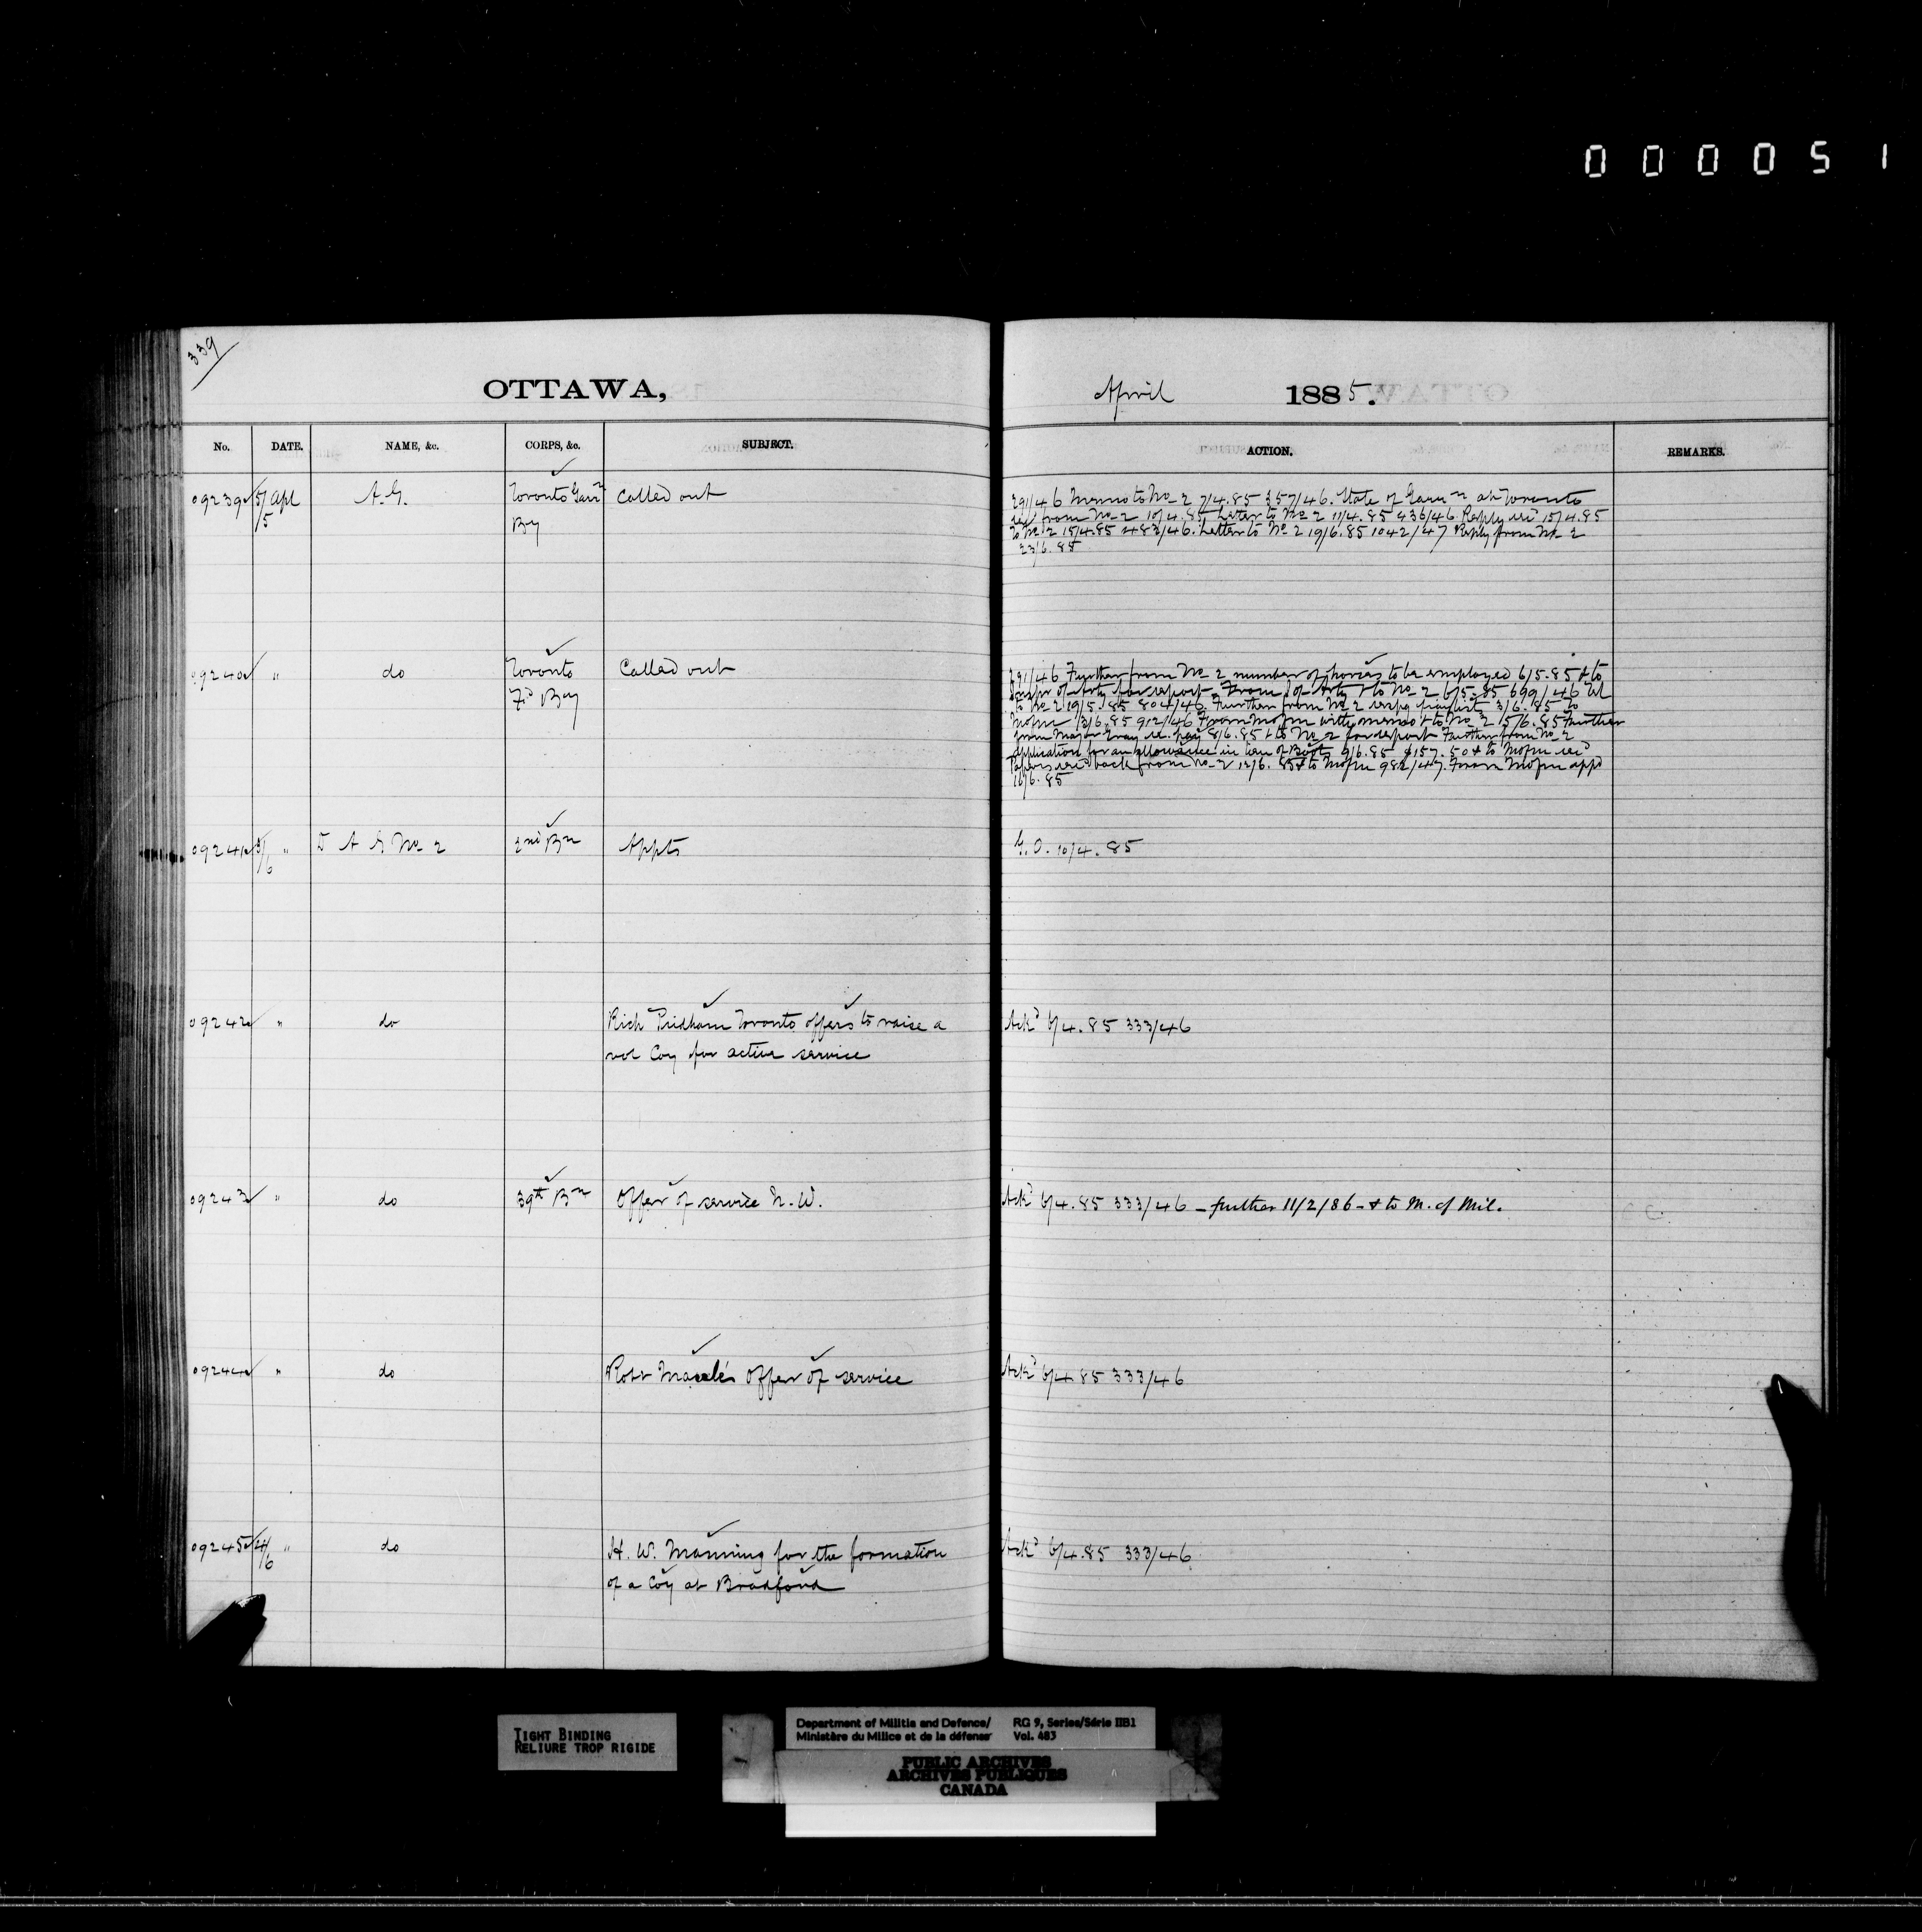 0000051
339
OTTAWA,
April 1885.
No. DATE. NAME, &c. CORPS, &c. SUBJECT. ACTION. REMARKS.
09239 5/5 Apl A.G. Toronto Garrn Called out
By
291/46 Memo to No 2 7/4.85 357/46. State of Garrn at Toronto
recd from No 2 10/4.85 Letter to No 2 11/4.85 436/46 Reply recd 15/4.85
to No 2 15/4.85 483/46. Letter to No 2 19/6.85 1042/47 Reply from No 2
23/6.85
09240 " do Toronto Called out
Fd By
291/46 Further from No 2 number of horses to be employed 6/5.85 & to
Inspr of Arty for report. From I of Arty & to No 2 6/5.85 699/46
to No 2 19/5.85 804/46. Further from No 2 3/6.85 to
Mofm 3/6.85 912/46 From Mofm with memo & to No 2 5/6.85 Further
from Major Gray re. pay 8/6.85 & to No 2 for report Further from No 2
application for an allowance in lieu of Boots 9/6.85 $157.50 & to Mofm
Papers recd back from No 2 12/6.85 & to Mofm 982/47. From Mofm appd
16/6.85
09241 " D A G No 2 2nd Bn Appts G.O. 10/4.85
09242 " do Rich Pridham Toronto offers to raise a Ackd 6/4.85 333/46
vol Coy for active service
09243 " do 39th Bn Offer of service N.W. Ackd 6/4.85 333/46 - further 11/2/86 - & to M. of Mil.
09244 " do Robt offer of service Ackd 6/4.85 333/46
09245 4/6 " do H. W. Manning for the formation Ackd 6/4.85 333/46
of a Coy at Bradford
TIGHT BINDING
RELIURE TROP RIGIDE
Department of Militia and Defence/ RG 9, Series/Série IIB1
Ministère du Milice et de la défense Vol. 483
PUBLIC ARCHIVES
ARCHIVES PUBLIQUES
CANADA